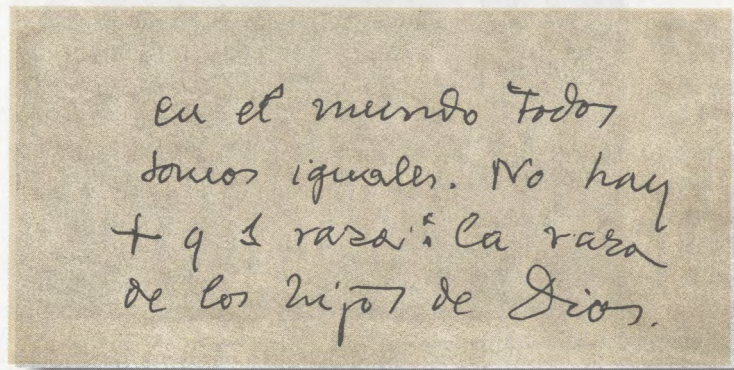 en el mundo todos
somos iguales. No hay
+ q 1 raza: la raza
de los hijos de Dios.